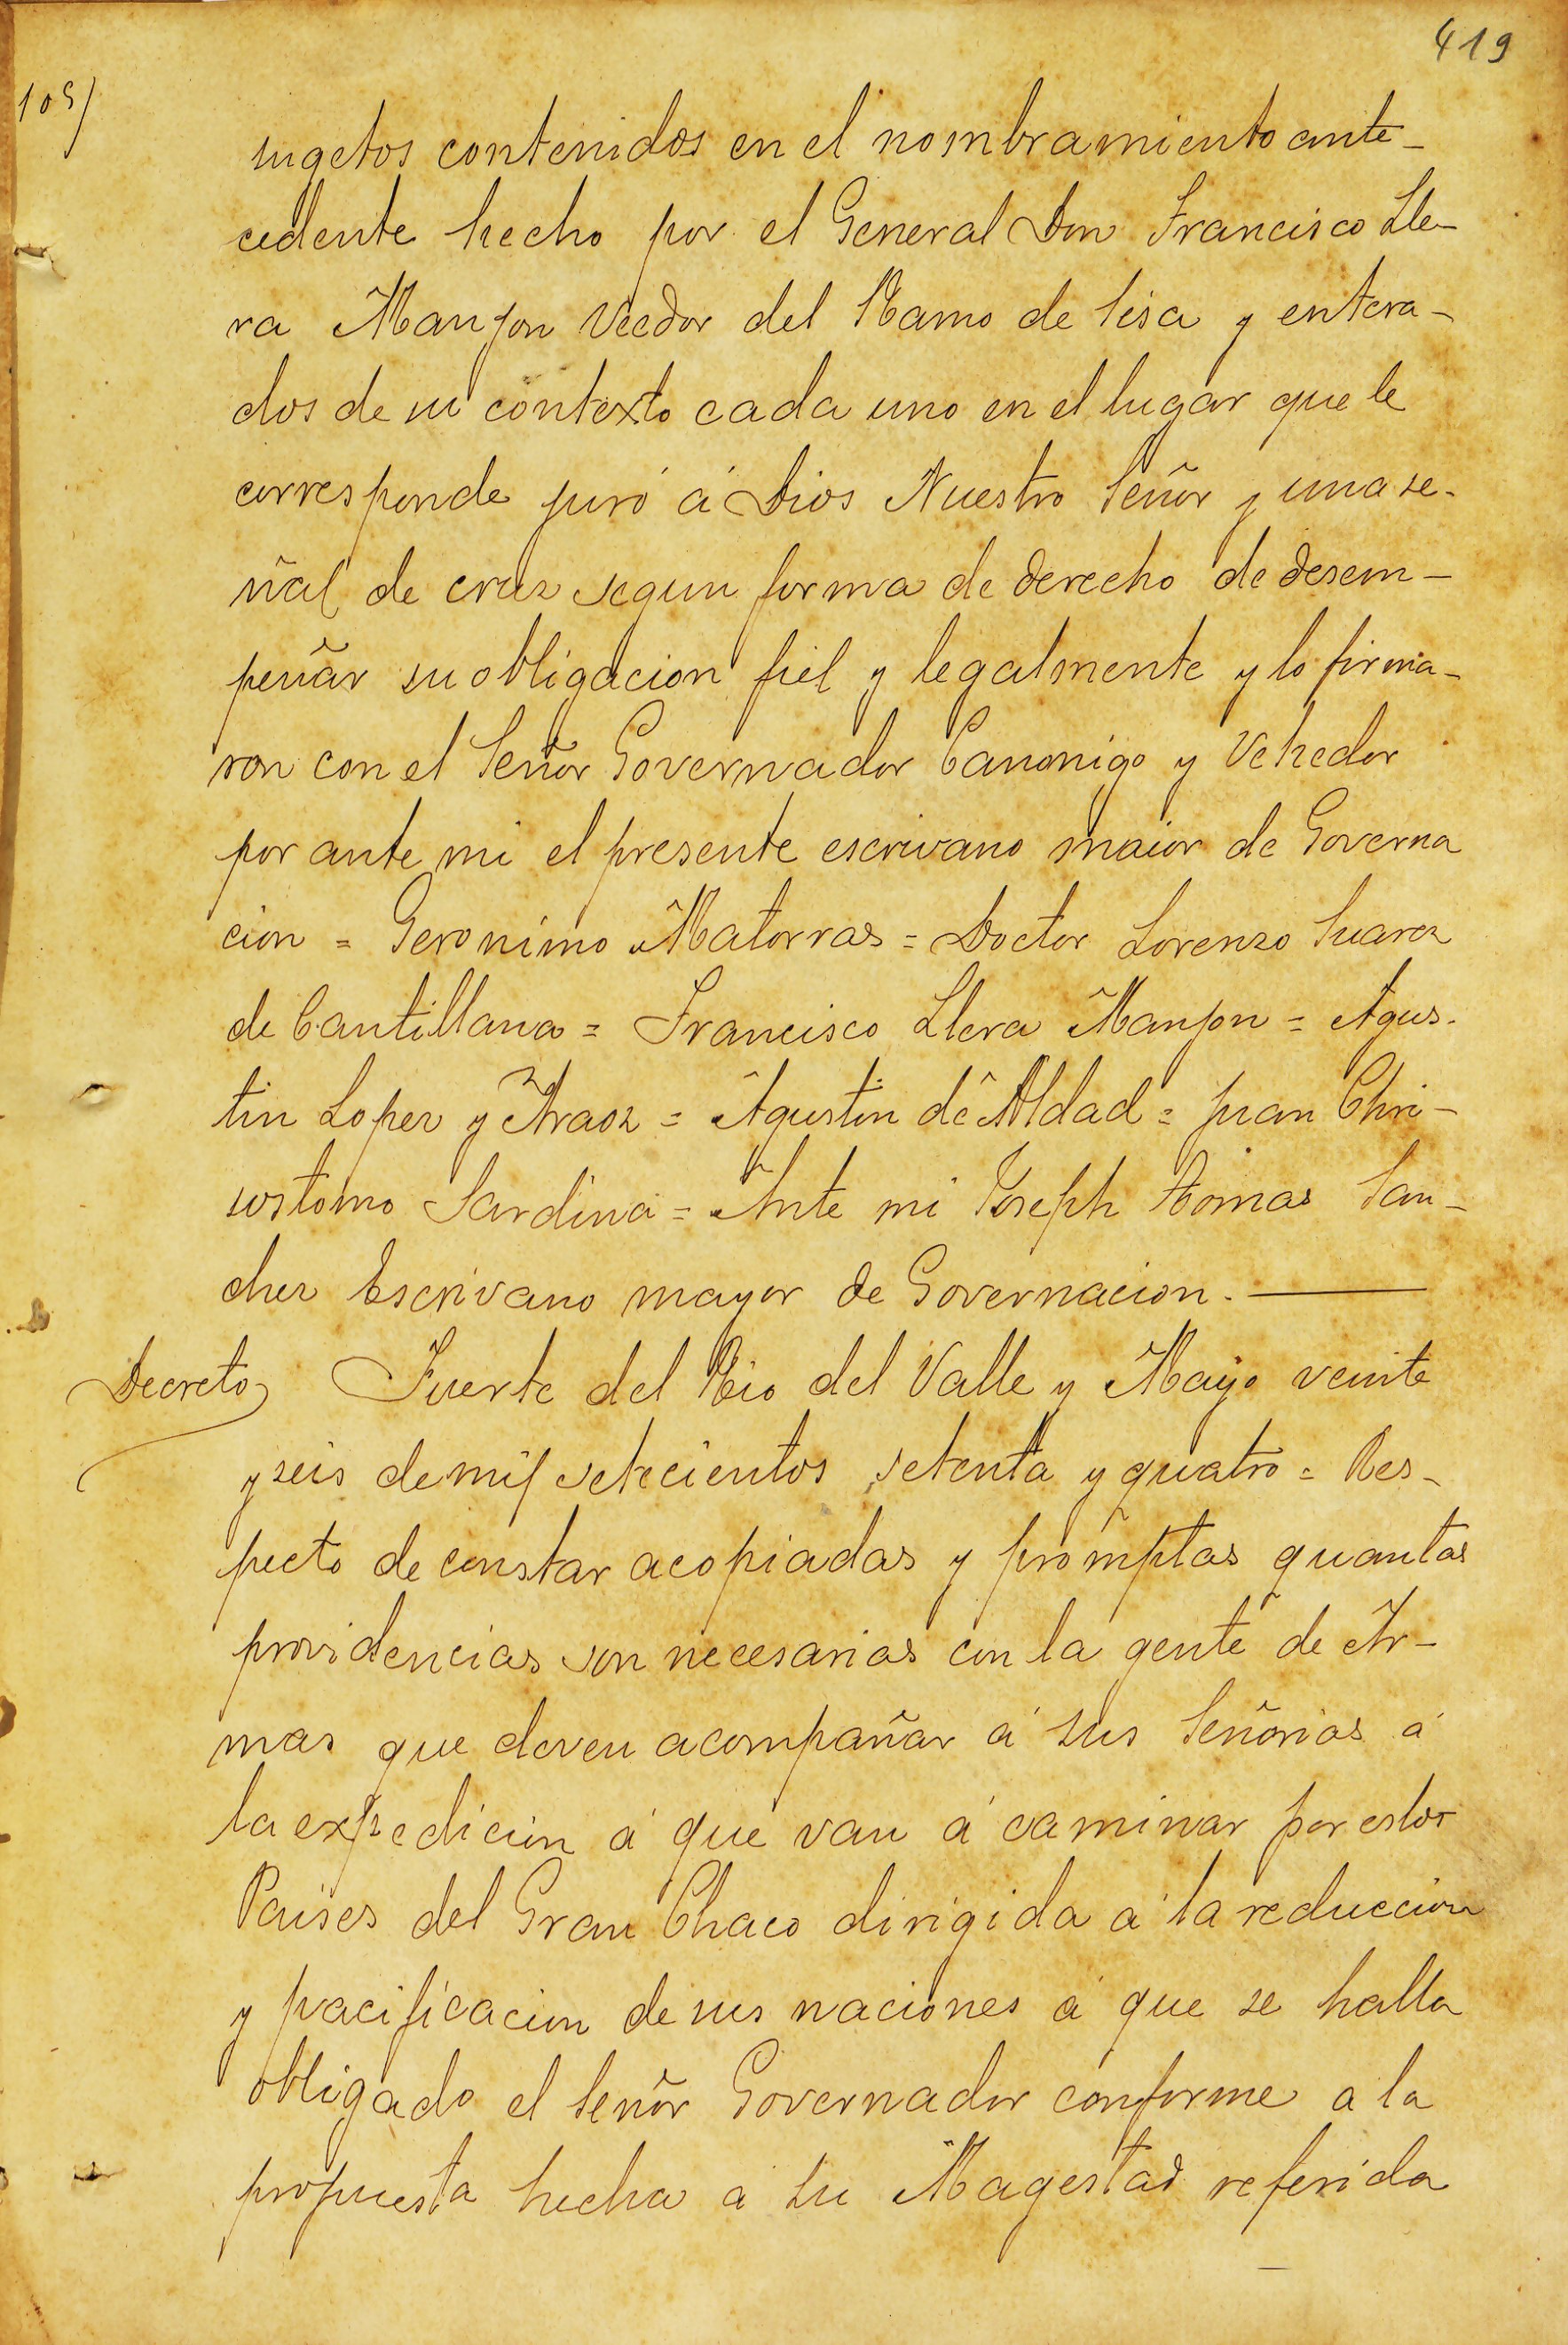 419
105)
sugetos contenidos en el nombramiento ante-
cedente hecho por el General Don Francisco Lle-
ra Manjon Veedor del Ramo de Sisa y entera-
dos de su contexto cada uno en el lugar que le
corresponde juró á Dios Nuestro Señor y una se-
ñal de cruz segun forma de derecho de desem-
peñar su obligacion fiel y legalmente y lo firma-
ron con el Señor Governador Canonigo y Vehedor
por ante mi el presente escrivano maior de Governa
cion = Geronimo Matorras = Doctor Lorenzo Suarez
de Cantillana = Francisco Llera Manjon = Agus-
tin Lopez y Araoz = Agustin de Aldad = Juan Chri-
sostomo Sardina = Ante mi Joseph Tomas San-
chez Escrivano mayor de Governacion. ―
Decreto Fuerte del Rio del Valle y Mayo veinte
y seis de mil setecientos setenta y quatro = Res-
pecto de constar acopiadas y promptas quantas
providencias son necesarias con la gente de Ar-
mas que deven acompañar á sus Señorias á
la expedicion á que van á caminar por estos
Paises del Gran Chaco dirigida á la reduccion
y pacificacion de sus naciones á que se halla
obligado el Señor Governador conforme a la
propuesta hecha a su Magestad referida